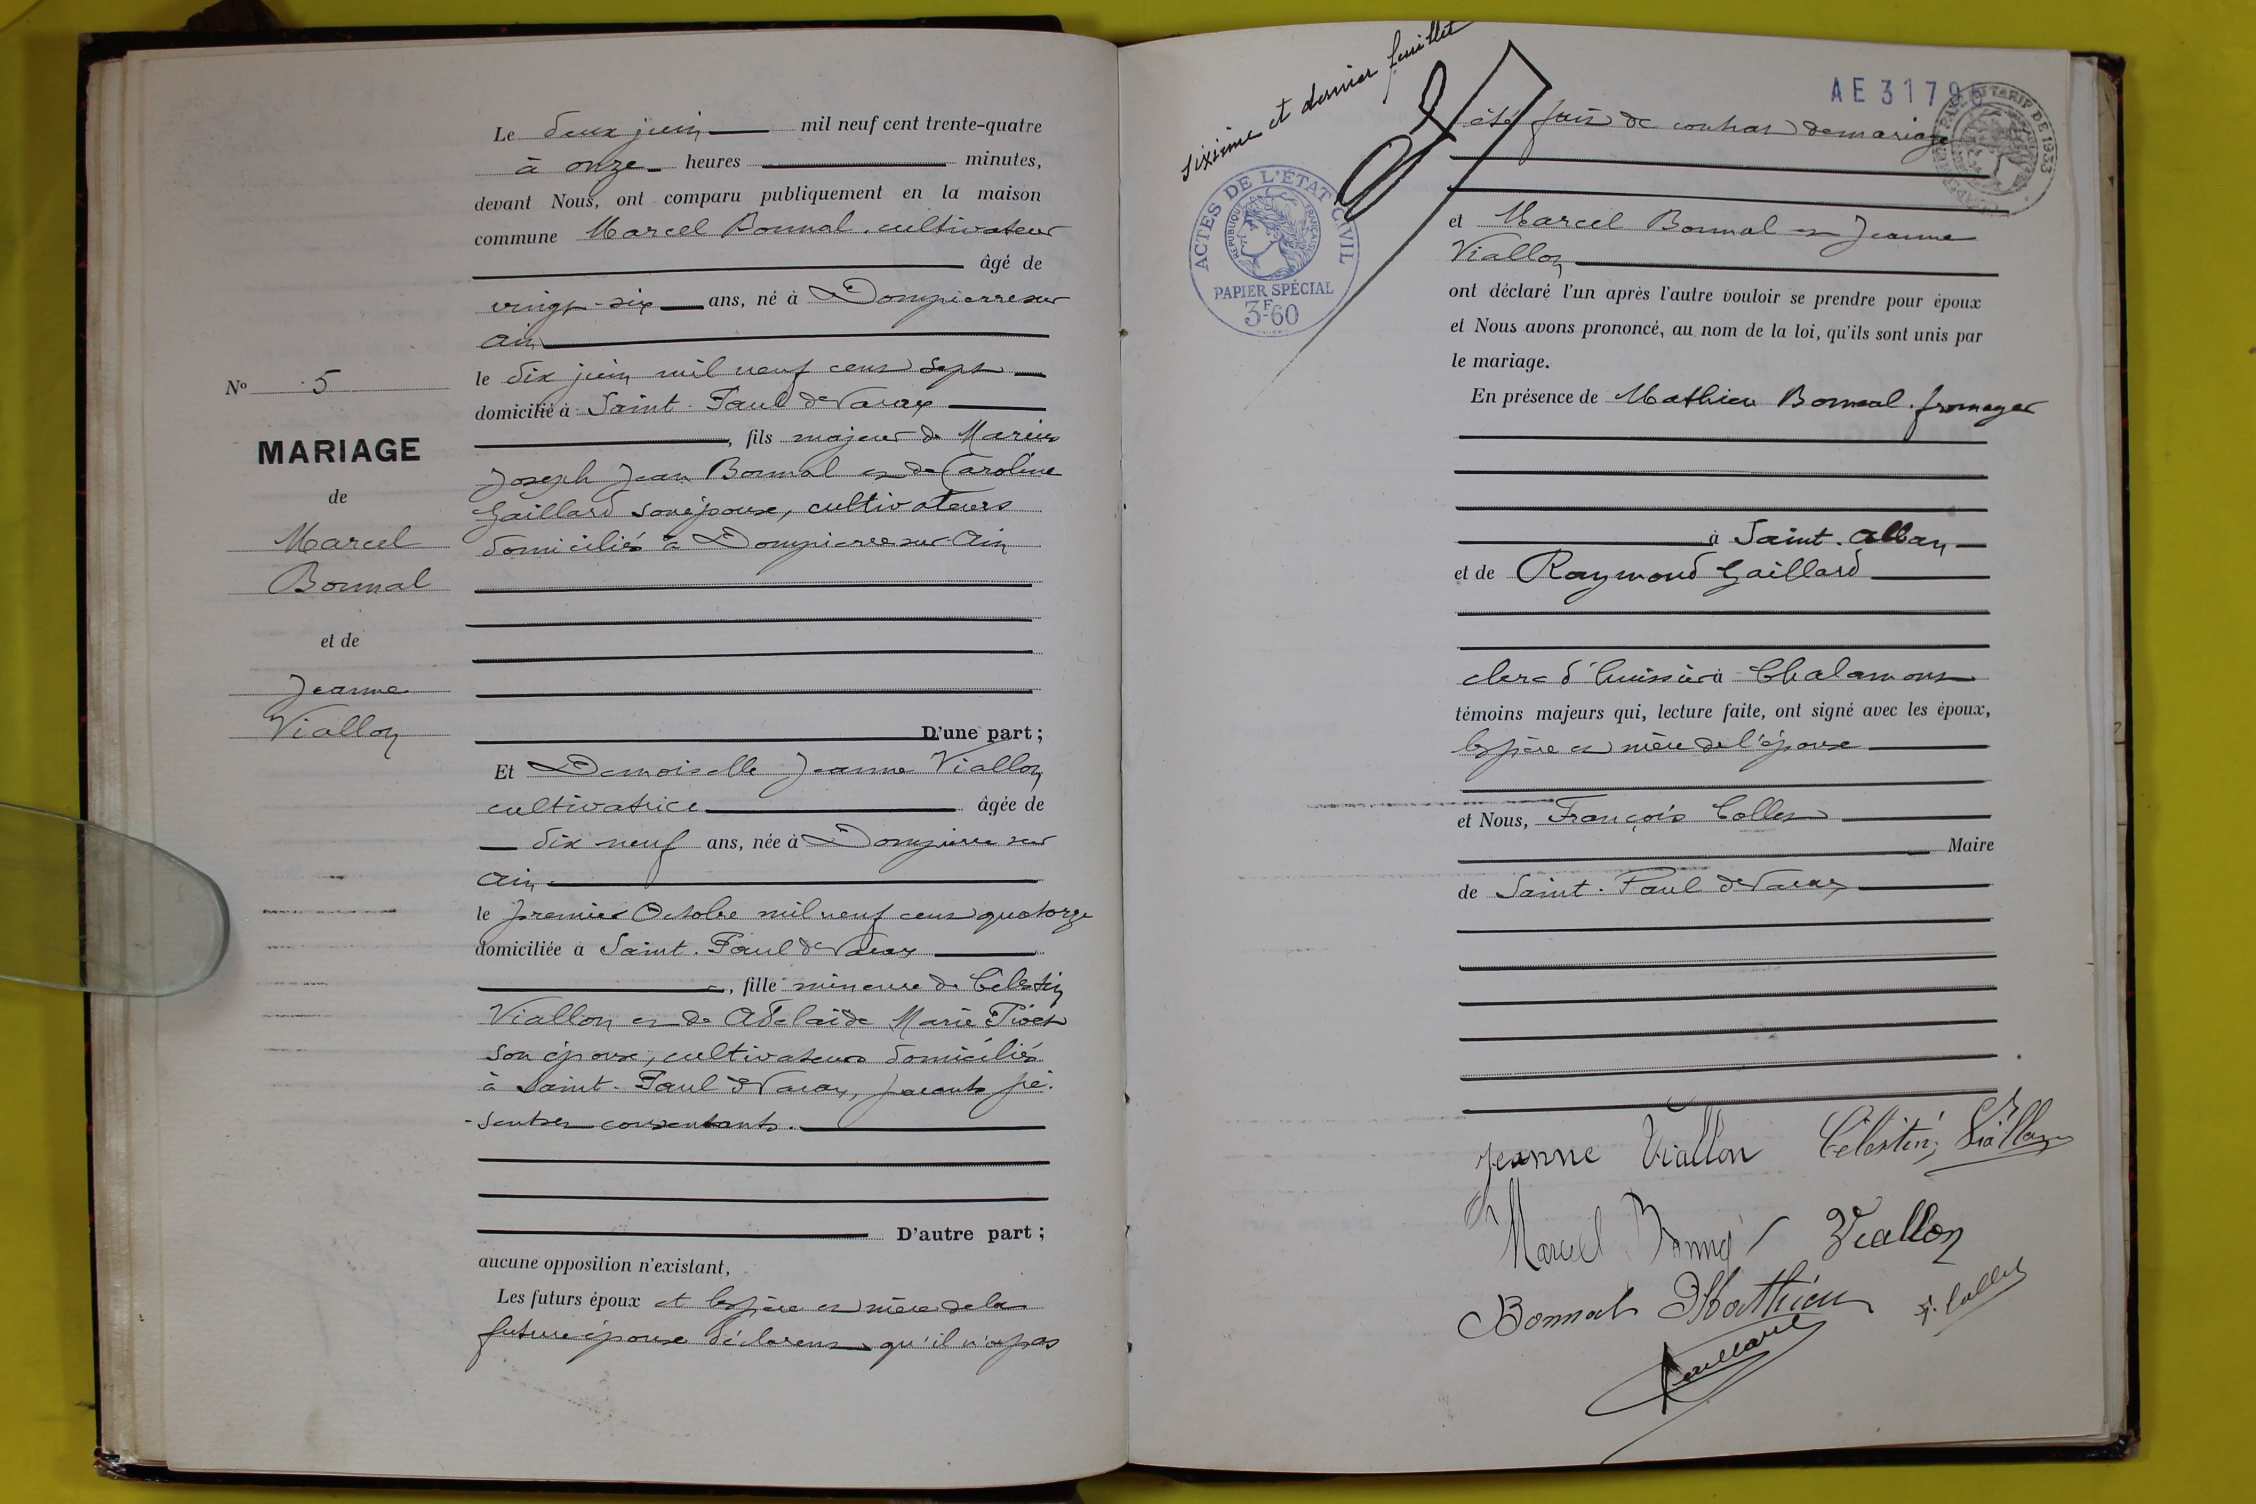 N° 5
MARIAGE
de
Marcel
Bonnal
et de
Jeanne
Viallon
Le deux juin mil neuf cent trente-quatre
à onze heures minutes,
devant Nous, ont comparu publiquement en la maison
commune Marcel Bonnal, cultivateur
âgé de
vingt-six ans, né à Dompierre sur
Ain
le dix juin mil neuf cent sept
domicilié à Saint-Paul de Varax
, fils majeur de Marius
Joseph Jean Bonnal et de Caroline
Gaillard son épouse, cultivateurs
domiciliés à Dompierre sur Ain
D'une part ;
Et Demoiselle Jeanne Viallon
cultivatrice âgée de
dix neuf ans, née à Dompierre sur
Ain
le premier Octobre mil neuf cent quatorze
domiciliée à Saint-Paul de Varax
, fille mineure de Célestin
Viallon et de Adelaïde Marie Pivet
son épouse, cultivateurs domiciliés
à Saint-Paul de Varax, parents pré-
-sents et consentants.
D'autre part ;
aucune opposition n'existant,
Les futurs époux et les père et mère de la
future épouse déclarent qu'il n'a pas
sixième et dernier feuillet
ACTES DE L'ÉTAT CIVIL
RÉPUBLIQUE FRANÇAISE
PAPIER SPÉCIAL
3F60
AE 3179
TARIF DE 1933
été fait de contrat de mariage
et Marcel Bonnal et Jeanne
Viallon
ont déclaré l'un après l'autre vouloir se prendre pour époux
et Nous avons prononcé, au nom de la loi, qu'ils sont unis par
le mariage.
En présence de Mathieu Bonnal, fromager
à Saint-Alban
et de Raymond Gaillard
clerc d'huissier à Chalamont
témoins majeurs qui, lecture faite, ont signé avec les époux,
les père et mère de l'épouse
et Nous, François Collet
Maire
de Saint-Paul de Varax
Jeanne Viallon Célestin Viallon
Marcel Bonnal Viallon
Bonnal Mathieu F. Collet
Gaillard